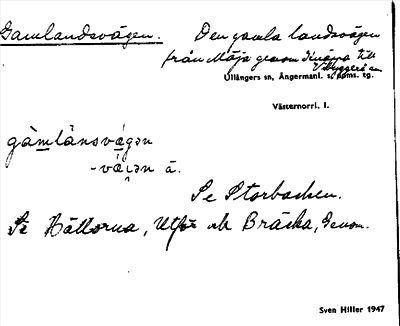 Gamlandsvägen. Den gamla landsvägen
från Mäja genom till
Ullångers sn, Ångermanl. s. doms. tg.
Västernorrl. l.
gàmlánsvä́gən
-vä́i̯ən ä.
Se Storbacken.
Se Hällorna, Utför och Bräcka, Genom.
Sven Hiller 1947